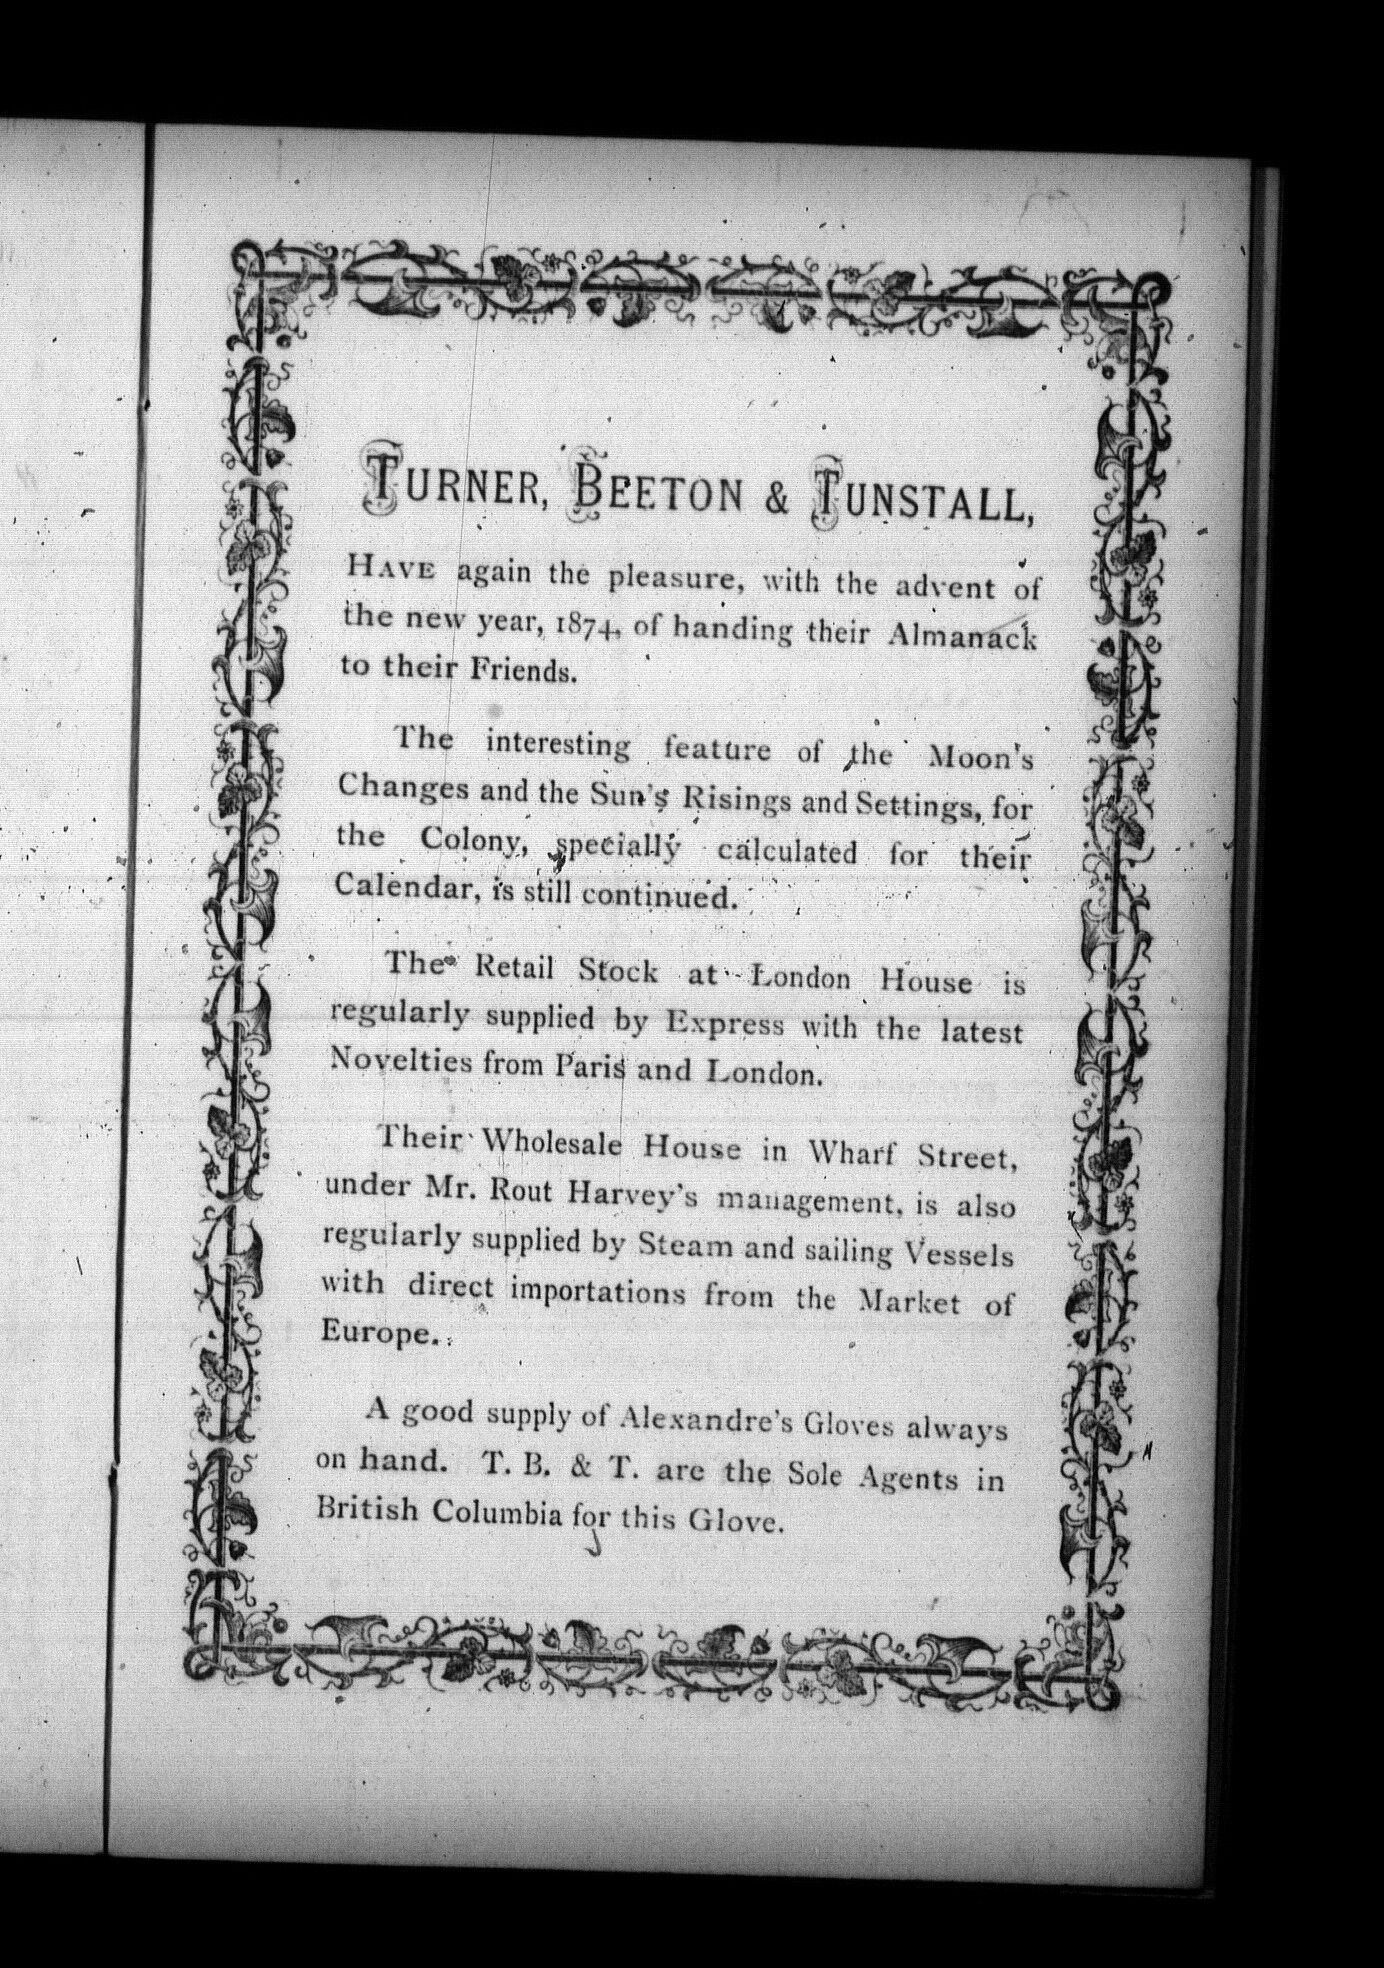 TURNER, BEETON & TUNSTALL,
HAVE again the pleasure, with the advent of
the new year, 1874, of handing their Almanack
to their Friends.
The interesting feature of the Moon's
Changes and the Sun's Risings and Settings, for
the Colony, specially calculated for their
Calendar, is still continued.
The Retail Stock at London House is
regularly supplied by Express with the latest
Novelties from Paris and London.
Their Wholesale House in Wharf Street,
under Mr. Rout Harvey's management, is also
regularly supplied by Steam and sailing Vessels
with direct importations from the Market of
Europe.
A good supply of Alexandre's Gloves always
on hand. T. B. & T. are the Sole Agents in
British Columbia for this Glove.